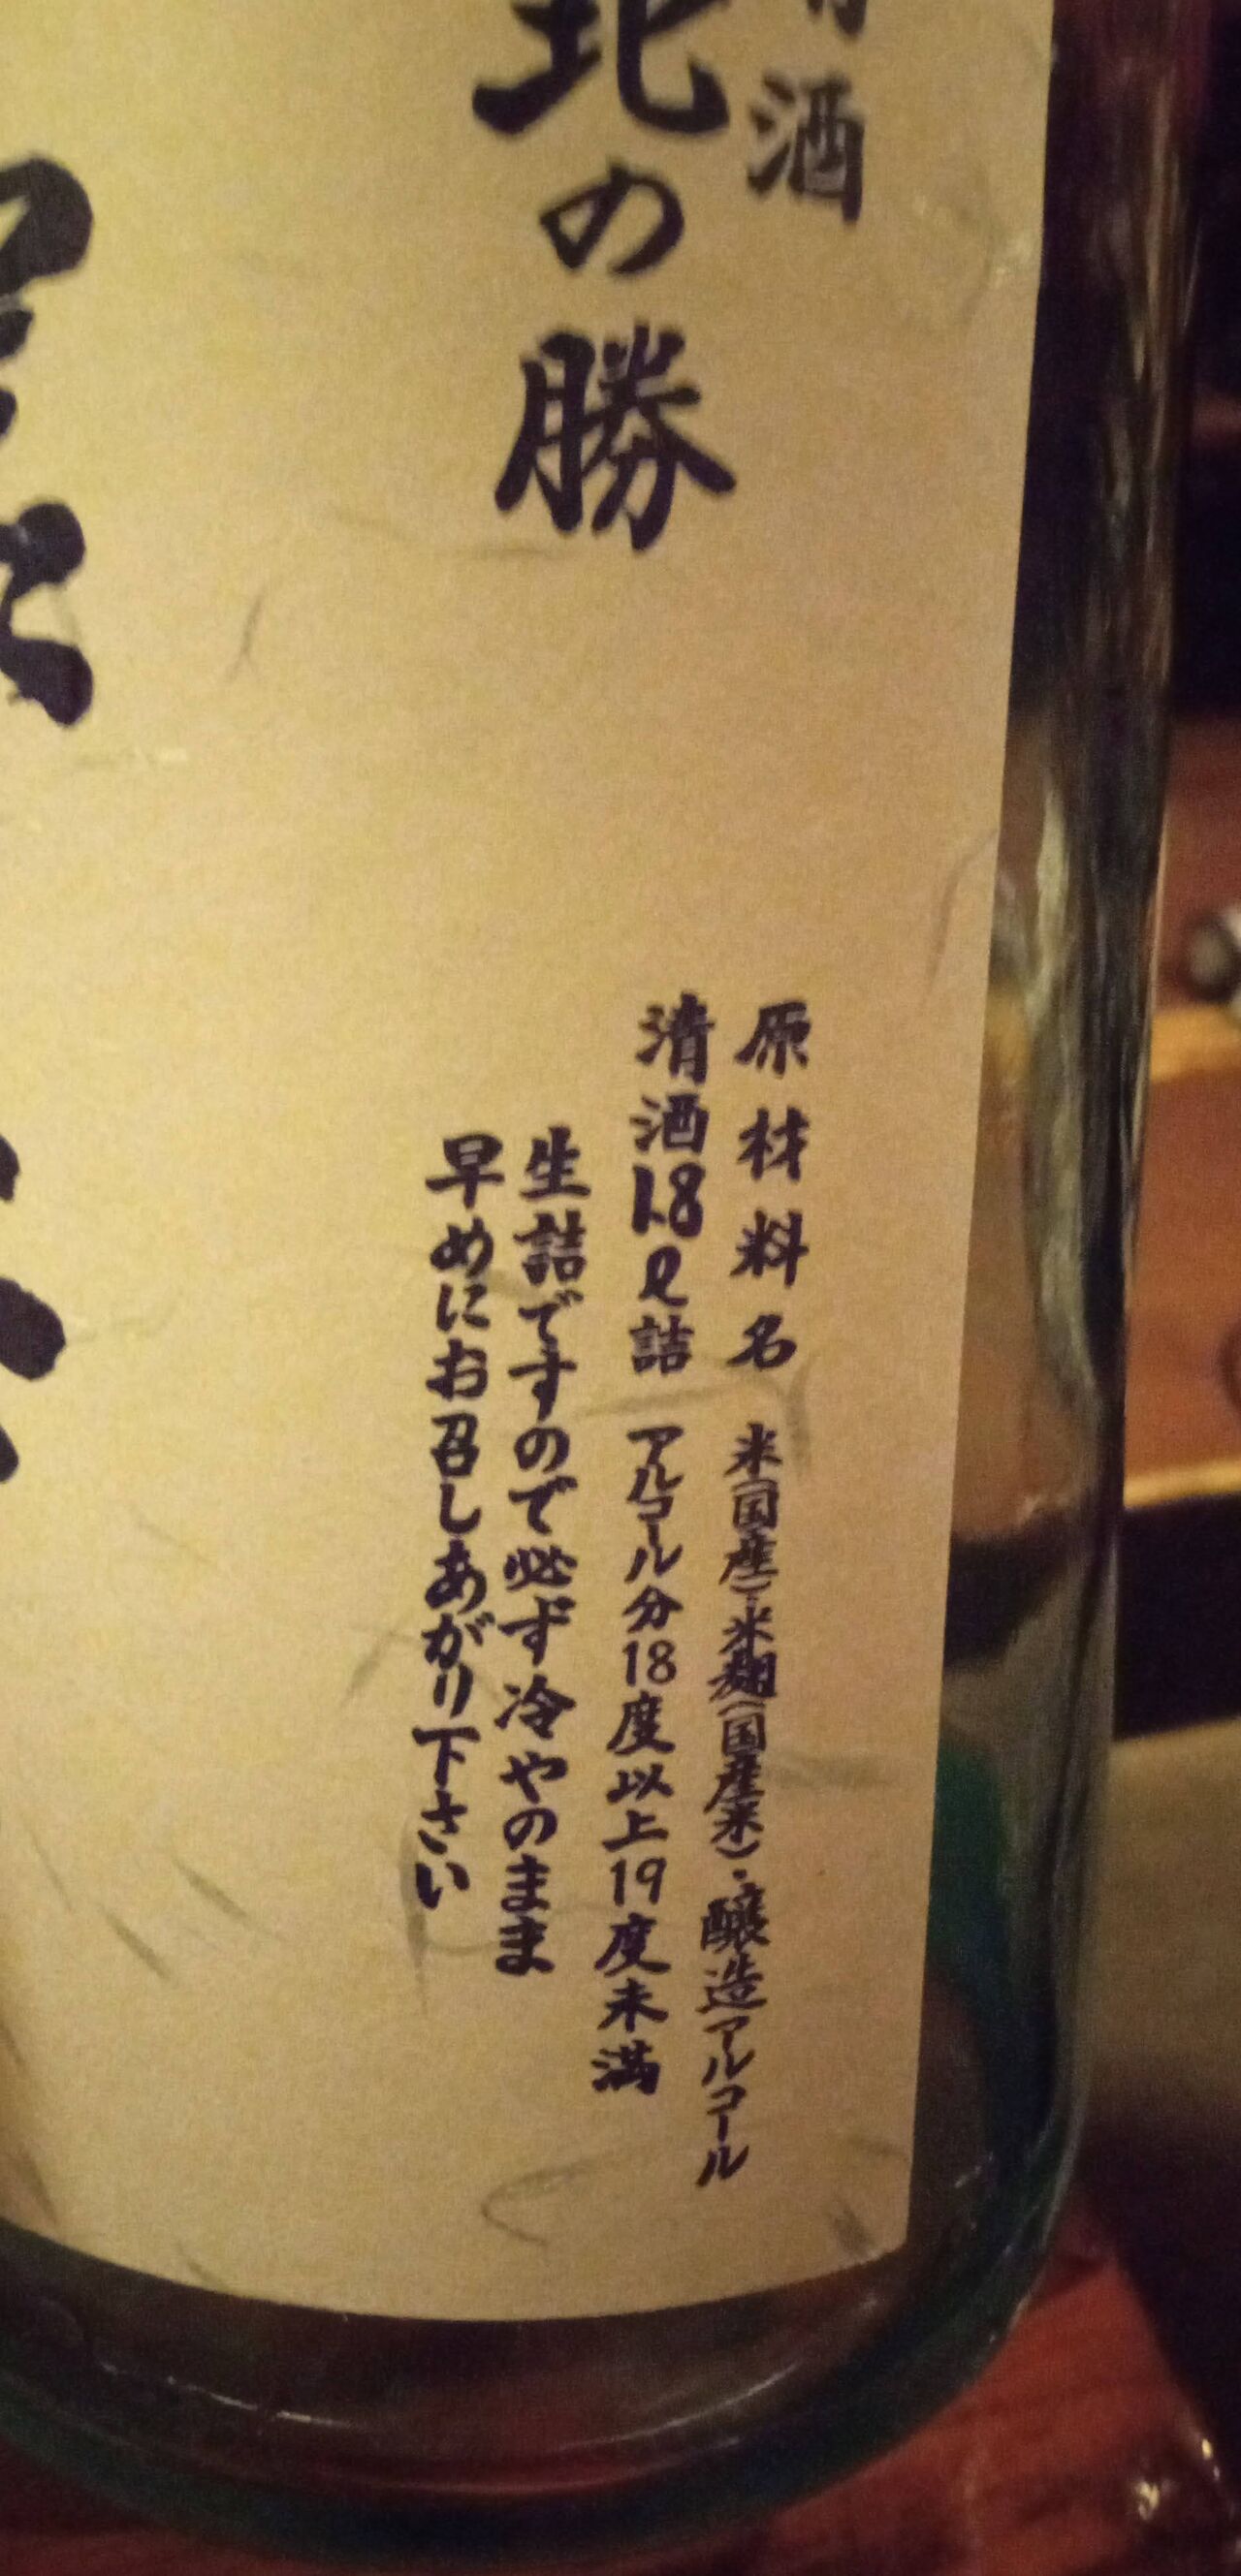 酒
北の勝
原材料名 米(国産)・米麹(国産米)・醸造アルコール
清酒1.8ℓ詰 アルコール分18度以上19度未満
生詰ですので必ず冷やのまま
早めにお召しあがり下さい